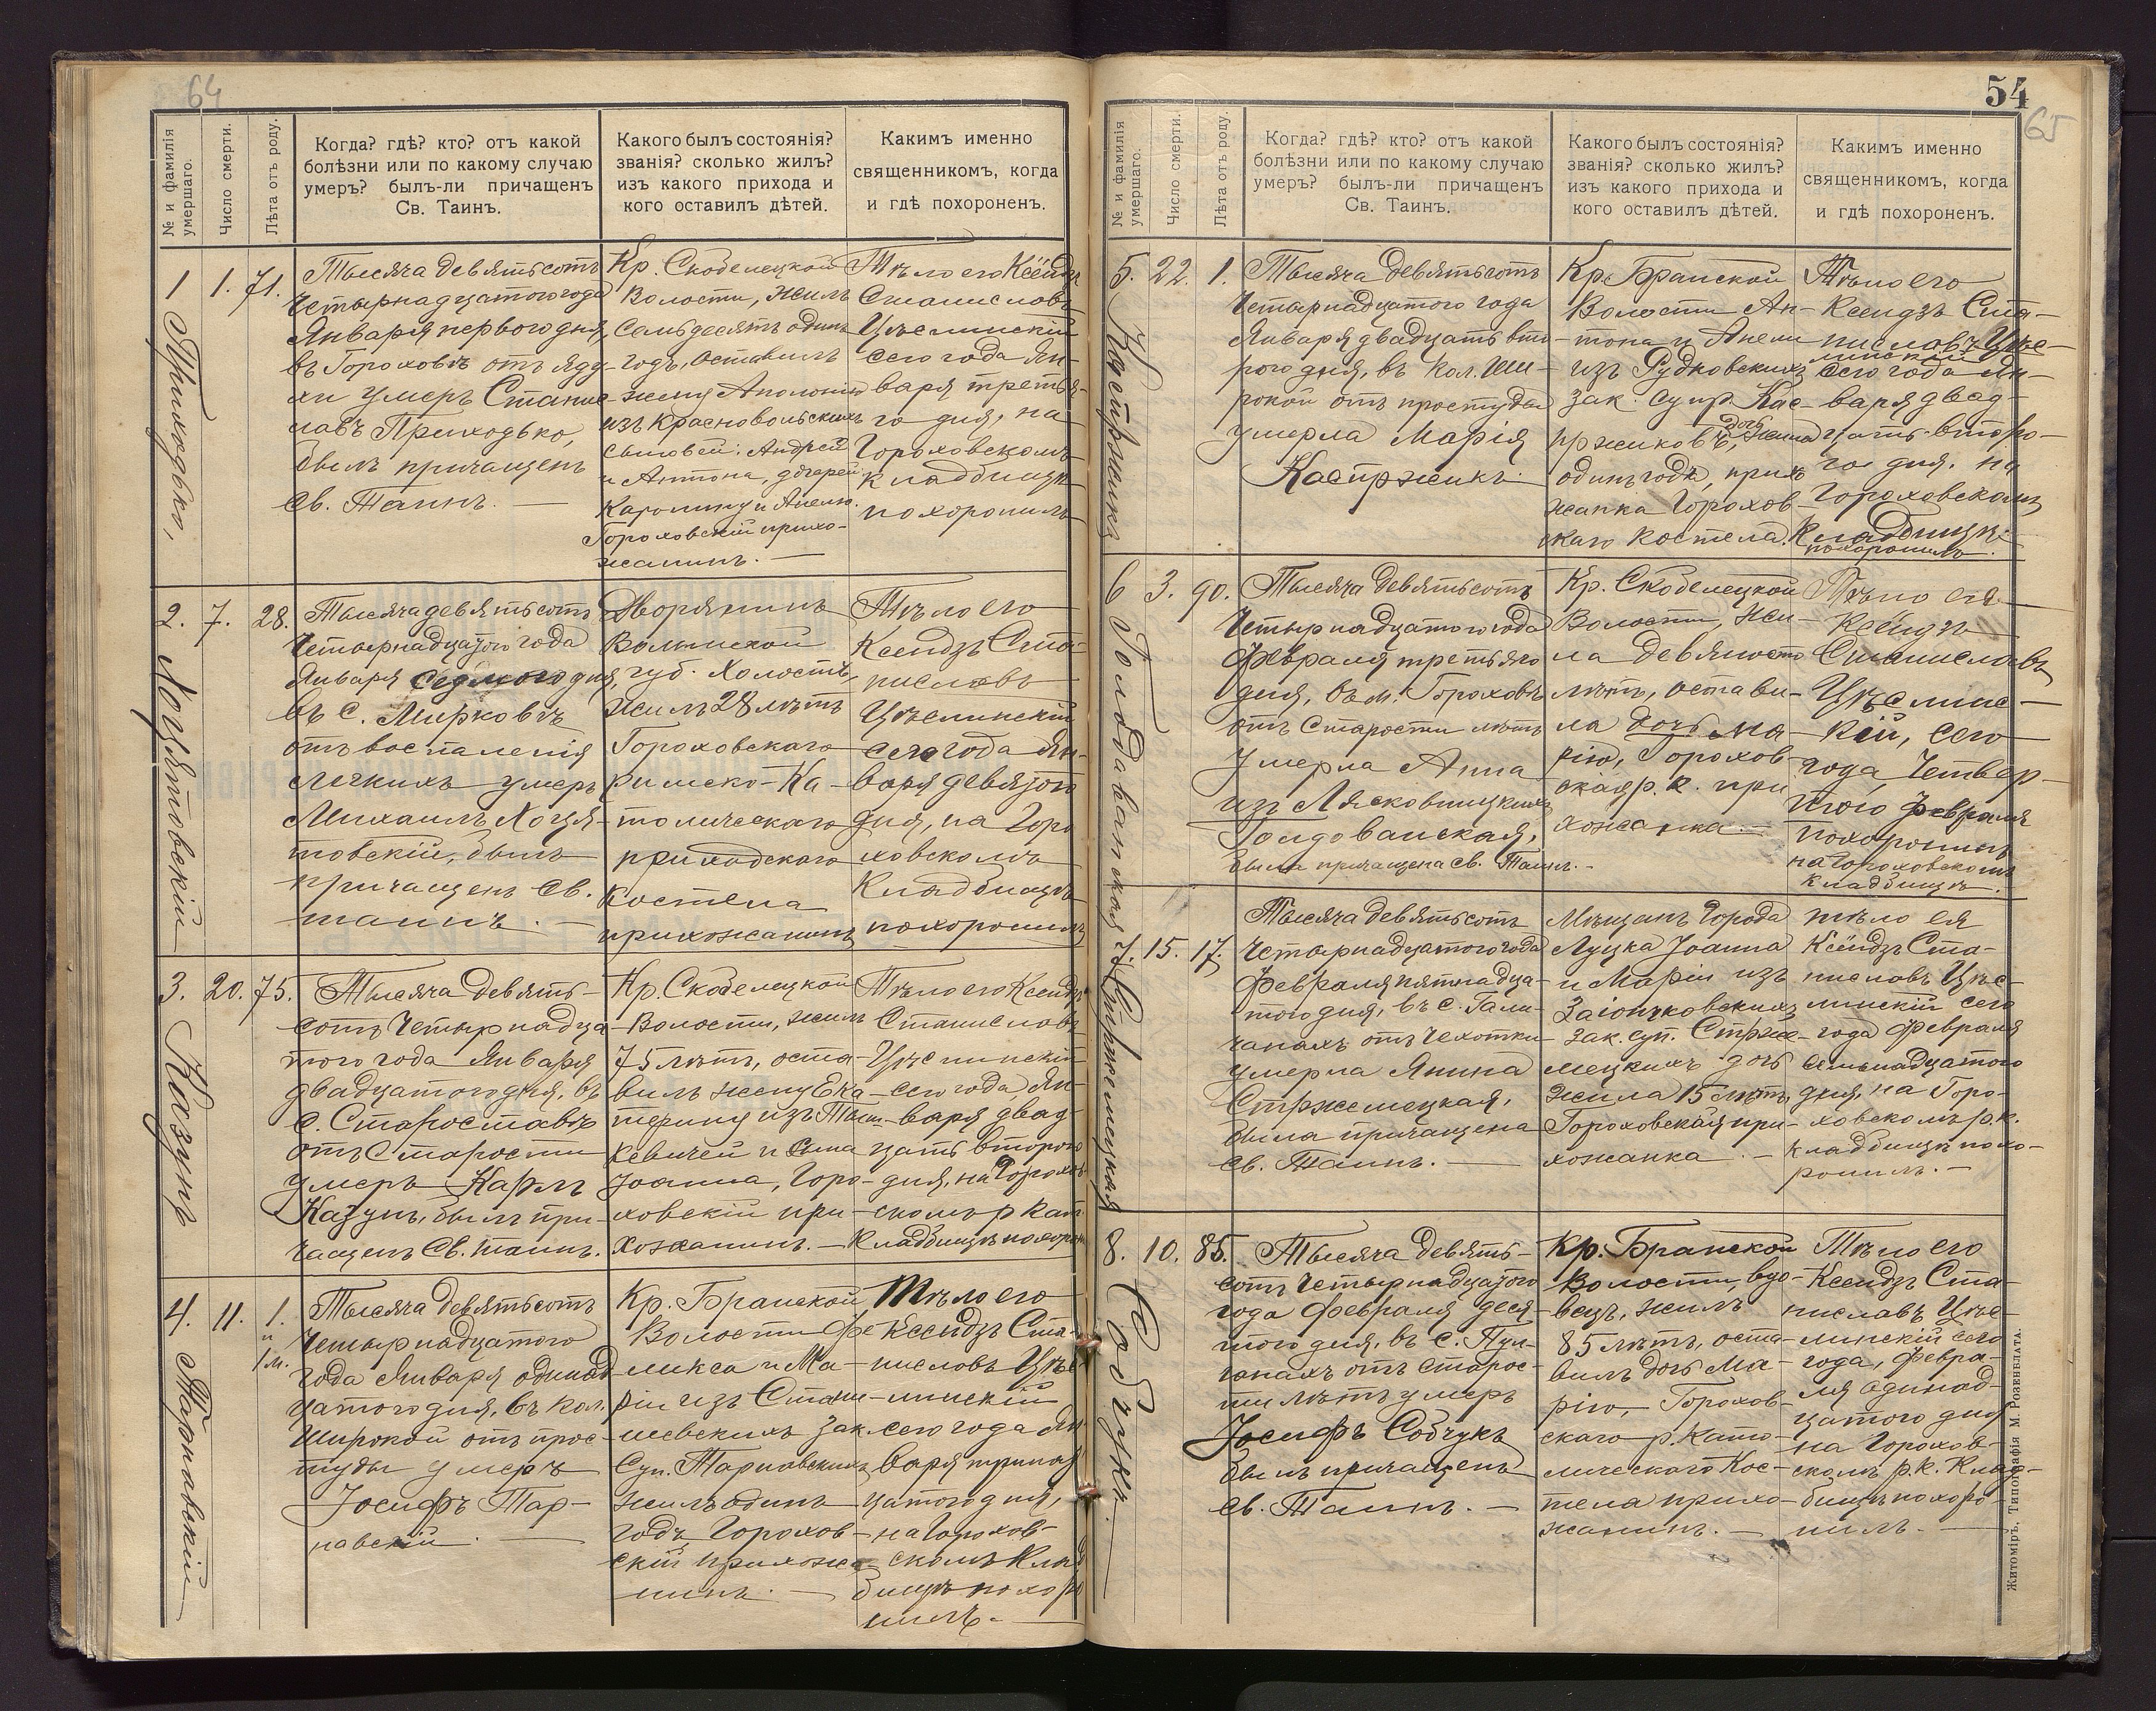 64
№ и фамилія умершаго.
Число смерти.
Лѣта отъ роду.
Когда? гдѣ? кто? отъ какой
болѣзни или по какому случаю
умеръ? былъ-ли причащенъ
Св. Таинъ.
Какого былъ состоянія?
званія? сколько жилъ?
изъ какого прихода и
кого оставилъ дѣтей.
Какимъ именно
священникомъ, когда
и гдѣ похороненъ.
1 Приходько,
1.
71.
Тысяча девятьсотъ
четырнадцатого года
Января первого дня,
въ Гороховѣ отъ
умеръ Станис-
лавъ Приходько,
былъ причащенъ
Св. Таинъ. —
Кр. Скобелецкой
Волости, жилъ
семьдесятъ одинъ
годъ, оставилъ
жену Аполонію
изъ Красновольскихъ
сыновей: Андрей
и Антона, дочерей
Каролину и Анелю.
Гороховскій прихо-
жанинъ. —
Тѣло его Ксендзъ
Станиславъ
Цѣслинскій
сего года Ян-
варя третья-
го дня, на
Гороховскомъ
кладбищѣ
похоронилъ
2. Хоцятовскій
7.
28.
Тысяча девятьсотъ
четырнадцатого года
Января седмого дня,
въ с. Мирковѣ
отъ воспаленія
легкихъ умеръ
Михаилъ Хоця-
товскій, былъ
причащенъ Св.
таинъ. —
Дворянинъ
Волынской
губ. Холостъ,
жилъ 28 лѣтъ
Гороховскаго
римско-Ка-
толическаго
приходскаго
костела
прихожанинъ
Тѣло его
Ксендзъ Ста-
ниславъ
Цѣслинскій
сего года Ян-
варя девятого
дня, на Горо
ховскомъ
Кладбищѣ
похоронилъ
3. Казунъ
20.
75.
Тысяча девять-
сотъ четырнадца-
того года Января
двадцатого дня, въ
с. Староставъ
отъ Старости
умеръ Карлъ
Казунъ, былъ при-
чащенъ Св. таинъ.
Кр. Скобелецкой
Волости, жилъ
75 лѣтъ, оста-
вилъ жену Ека-
терину изъ
кевичей и сына
Іоанна, Горо-
ховскій при-
хожанинъ. —
Тѣло его Ксендзъ
Станиславъ
Цѣслинскій
сего года, Ян-
варя двад-
цать второго
дня, на Горохов
скомъ р кат
кладбищѣ похорон
4. Тарнавскій
11.
1. и 1 м.
Тысяча девятьсотъ
четырнадцатого
года Января одинад
цатого дня, въ кол.
Широкой отъ прос-
туды умеръ
Іосифъ Тар-
навскій. —
Кр. Бранской
Волости Фе
ликса и Ма-
ріи изъ Стани-
шевскихъ зак.
Суп. Тарнавскихъ
жилъ одинъ
годъ, Горохов-
скій прихожа
нинъ. —
Тѣло его
Ксендзъ Ста-
ниславъ Цѣс-
линскій
сего года Ян
варя тринад
цатого дня,
на Горохов-
скомъ Клад
бищѣ похоро
нилъ. —
54
65
№ и фамилія умершаго.
Число смерти.
Лѣта отъ роду.
Когда? гдѣ? кто? отъ какой
болѣзни или по какому случаю
умеръ? былъ-ли причащенъ
Св. Таинъ.
Какого былъ состоянія?
званія? сколько жилъ?
изъ какого прихода и
кого оставилъ дѣтей.
Какимъ именно
священникомъ, когда
и гдѣ похороненъ.
5. Каспржикъ
22.
1.
Тысяча девятьсотъ
четырнадцатого года
Января двадцать вто-
рого дня, въ кол. Ши-
рокой отъ простуды
умерла Марія
Каспржикъ.
Кр. Бранской
Волости Ан-
тона и Анели
изъ Рудковскихъ
зак. супр Кас-
пржиковъ, дочь жила
одинъ годъ, прихо
жанка Горохов-
скаго костела.
Тѣло его
Ксендзъ Ста-
ниславъ Цѣс-
линскій
сего года Ян-
варя двад-
цать второ-
го дня, на
Гороховскомъ
Кладбищѣ
похоронилъ.
6 Голдованская
3.
90.
Тысяча девятьсотъ
четырнадцатого года
Февраля третьяго
дня, въ м. Гороховѣ
отъ старости лѣтъ
умерла Анна
изъ Лясковницкихъ
Голдованская,
была причащена Св. Таинъ. —
Кр. Скобелецкой
Волости, жи-
ла девяносто
лѣтъ, остави-
ла дочь Ма-
рію, Горохов
ская р. к. при
хожанка. —
Тѣло ея
Ксендзъ
Станиславъ
Цѣслинс-
кій, сего
года, Четвер-
того Февраля
похоронилъ
на Гороховскомъ
кладбищѣ.
7. Стржемецкая
15.
17.
Тысяча девятьсотъ
четырнадцатого года
Февраля пятнадца-
того дня, въ с. Гали-
чанахъ отъ чехотки
умерла Янина
Стржемецкая,
была причащена
Св. Таинъ. —
Мѣщанъ города
Луцка Іоанна
и Маріи изъ
Заіончковскихъ
зак. суп. Стрже-
мецкихъ дочь
жила 15 лѣтъ,
Гороховская при-
хожанка. —
тѣло ея
Ксендзъ Ста-
ниславъ Цѣс-
линскій сего
года Февраля
семнадцатого
дня, на Горо-
ховскомъ р. к.
кладбищѣ похо-
ронилъ. —
8. Собчукъ.
10.
85.
Тысяча девять-
сотъ четырнадцатого
года Февраля деся-
того дня, въ с. Пул-
ганахъ отъ старос-
ти лѣтъ умеръ
Іосифъ Собчукъ
былъ причащенъ
Св. Таинъ. —
Кр. Бранской
Волости, вдо-
вецъ, жилъ
85 лѣтъ, оста-
вилъ дочь Ма-
рію, Горохов-
скаго р. като-
лическаго Кос-
тела прихо-
жанинъ. —
Тѣло его
Ксендзъ Ста-
ниславъ Цѣс-
линскій сего
года, Февра-
ля одинад-
цатого дня
на Горохов-
скомъ р. к. Клад-
бищѣ похоро-
нилъ. —
Житоміръ, Типографія М. Розенблата.